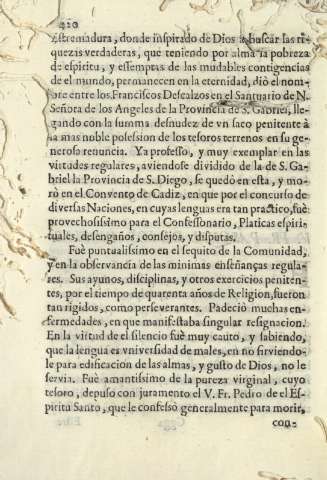 420
Estremadura, donde inspirado de Dios à buscar las ri-
quezas verdaderas, que teniendo por alma la pobreza
de espiritu, y essemptas de las mudables contigencias
de el mundo, permanecen en la eternidad, diò el nom-
bre entre los Franciscos Descalzos en el Santuario de N.
Señora de los Angeles de la Provincia de S. Gabriel, lle-
gando con la summa desnudez de vn saco penitente à
la mas noble posesion de los tesoros terrenos en su ge-
neroso renuncia. Ya professo, y muy exemplar en las
virtudes regulares, aviendose dividido de la de S. Ga-
briel la Provincia de S. Diego, se quedò en esta, y mo-
rò en el Convento de Cadiz, en que por el concurso de
diversas Naciones, en cuyas lenguas era tan practico, fuè
provechosissimo para el Confessonario, Platicas espiri-
tuales, desengaños, consejos, y disputas.
Fuè puntualissimo en el sequito de la Comunidad,
y en la observancia de las minimas enseñanças regula-
res. Sus ayunos, disciplinas, y otros exercicios peniten-
tes, por el tiempo de quarenta años de Religion, fueron
tan rigidos, como perseverantes. Padeciò muchas en-
fermedades, en que manifestaba singular resignacion.
En la virtud de el silencio fuè muy cauto, y sabiendo,
que la lengua es vniversidad de males, en no sirviendo-
le para edificacion de las almas, y gusto de Dios, no le
servia. Fuè amantissimo de la pureza virginal, cuyo
tesoro, depuso con juramento el V. Fr. Pedro de el Es-
piritu Santo, que le confessò generalmente para morir,
con-